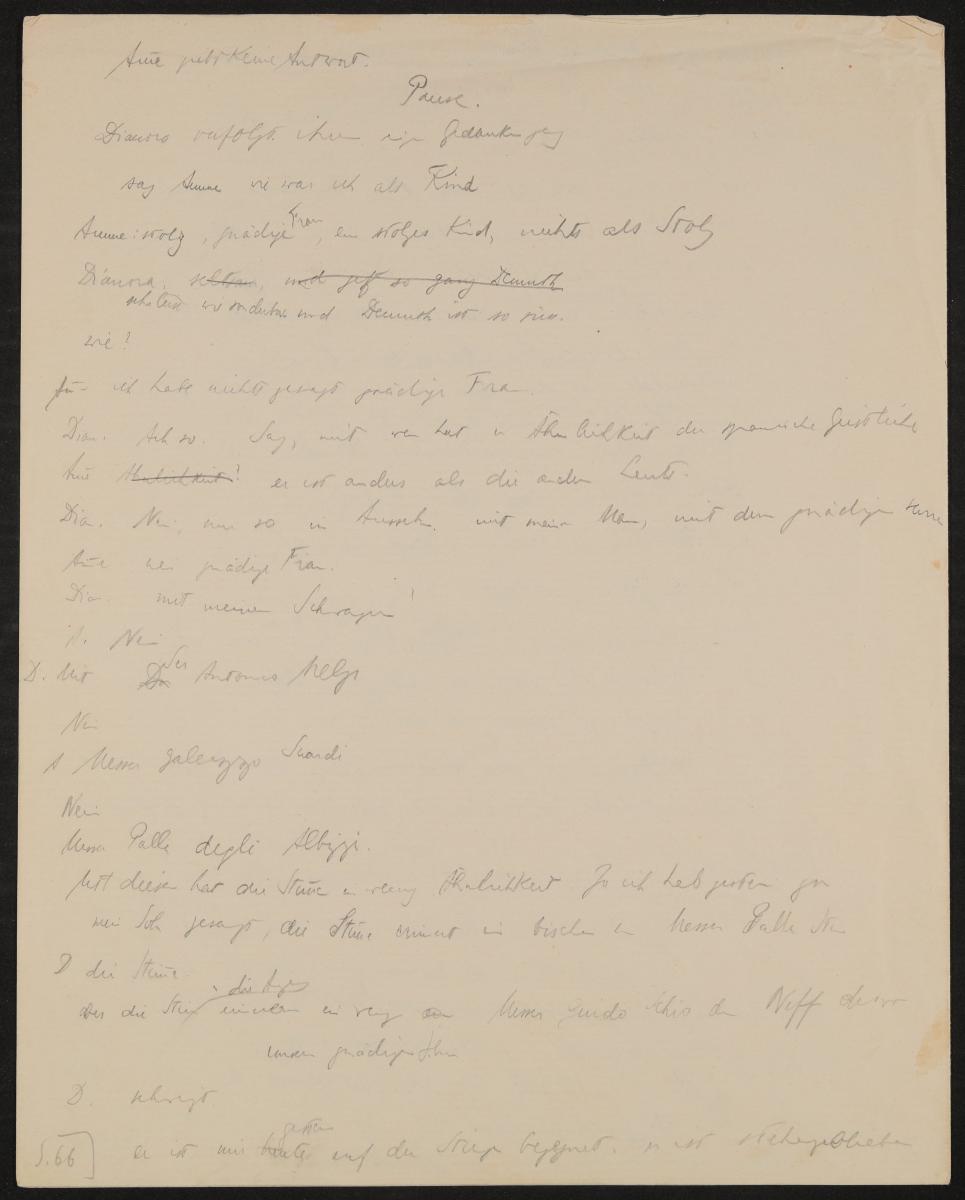 Amme gibt keine Antwort.
Pause.
Dianora verfolgt ihren eigen Gedankengang
sag Amme wie war ich als Kind
Amme: stolz, gnädige Frau, ein stolzes Kind, nichts als Stolz
Dianora. seltsam, und jetzt so ganz Demuth
wie sonderbar und Demuth ist so süss.
wie?
Am ich habe nichts gesagt gnädige Frau.
Dian. Ach so. Sag, mit wem hat er Ähnlichkeit der spanische Geistliche
Am Ähnlichkeit? er ist anders als die andern Leute.
Dia. Nein, nur so im Aussehn. mit meinem Mann, mit dem gnädigen Herrn
Am nein gnädige Frau.
Dia. mit meinem Schwager?
A. Nein
D. Mit Ser Antonio Melzi
Nein
Messer Galeazzo Suardi
Nein
Messer Palla degli Albizzi.
Mit diesem hat die Stimme ein wenig Ähnlichkeit Ja ich hab gestern zu
mein Sohn gesagt, die Stimme erinnert ein bischen an Messer Palla
D die Stimme
aber die die Augen erinnern ein wenig an Messer Guido Schio den Neffen
unsern gnädigen Herrn
D. schweigt.
S. 66] er ist mir heute gestern auf der Stiege begegnet. er ist stehengeblieben